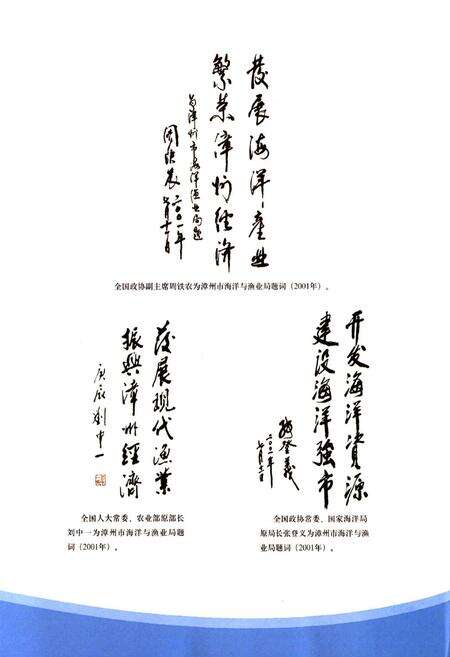 發展海洋產业
繁荣漳州经济
为漳州市海洋渔业局题
周铁农
二〇〇一年
七月十一日
全国政协副主席周铁农为漳州市海洋与渔业局题词(2001年)。
發展现代漁業
振興漳州經濟
庚辰 刘中一
全国人大常委、农业部原部长
刘中一为漳州市海洋与渔业局题
词(2001年)。
开发海洋資源
建设海洋強市
张登義
二〇〇一年
全国政协常委、国家海洋局
原局长张登义为漳州市海洋与渔
业局题词(2001年)。